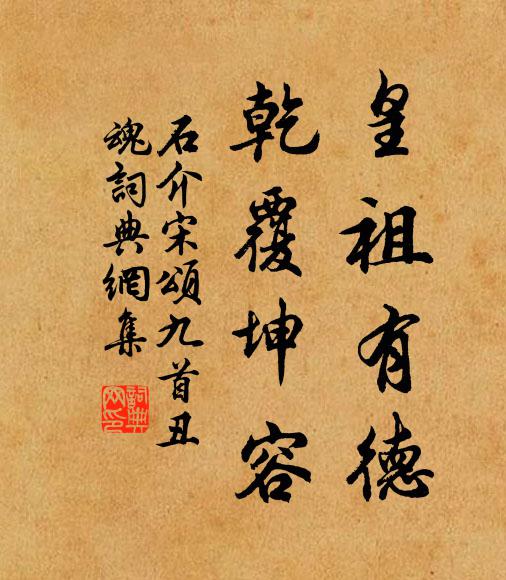 皇祖有德
乾覆坤容
石介宋頌九首丑
魂詞典網集
詞典
网印